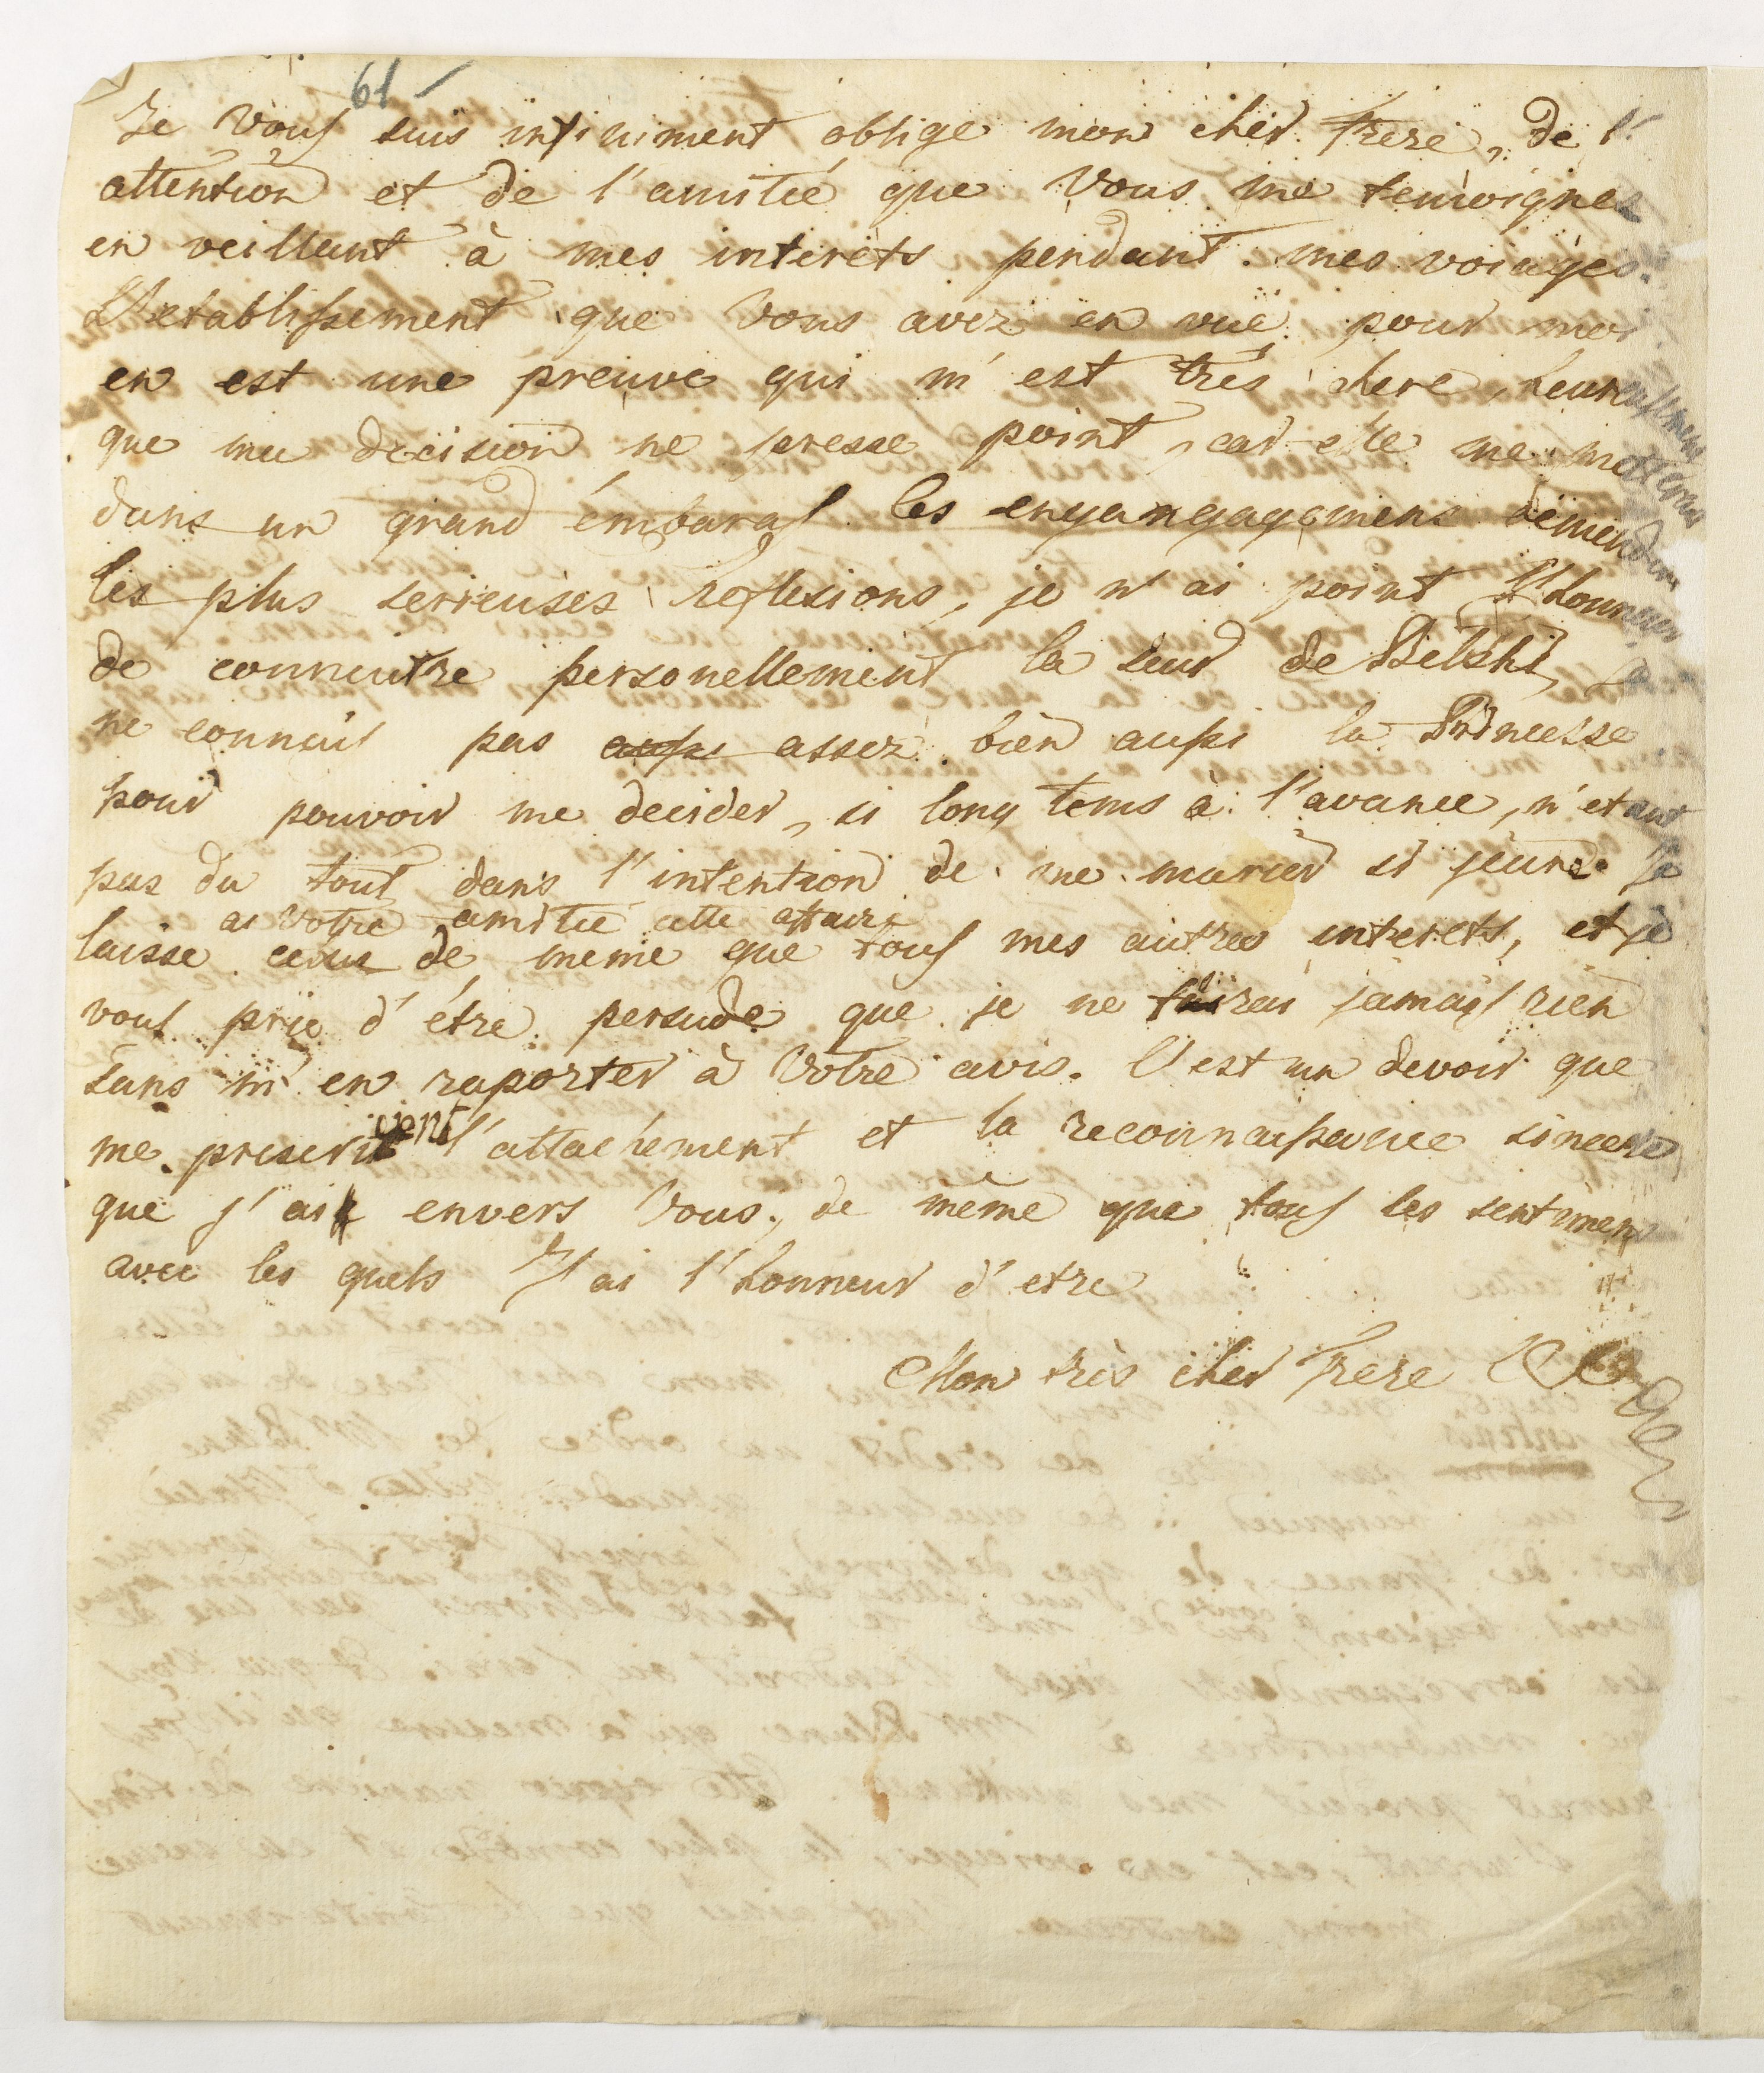 61
Je vous suis infiniment oblige mon cher Frere, de l'
attention et de l'amitié que Vous me temoignez
en veillant à mes interets pendant mes voiages.
L'etablissement que Vous avez en vuë pour moi
en est une preuve qui m'est très chere, heureusement
que ma decision ne presse point, car elle me mettroit
dans un grand émbaras les engangagemens demendent
les plus serieuses reflexions, je n'ai point l'honneur
de connoitre personellement la seur de Bielski, je
ne connois pas aussi assez bien aussi la Princesse
pour pouvoir me decider, si long tems à l'avance, n'etant
pas du tout dans l'intention de me marier si jeune. Je
a Votre amitié cette affaire
laisse de meme que tous mes autres interets, et je
vous prie d'être persude que je ne fairai jamais rien
sans m'en raporter à Votre avis. C'est un devoir que
me prescrivent l'attachement et la reconnaissance sincere
que j'ai envers Vous, de même que tous les sentimen
avec les quels J'ai l'honneur d'etre
Mon très cher Frere